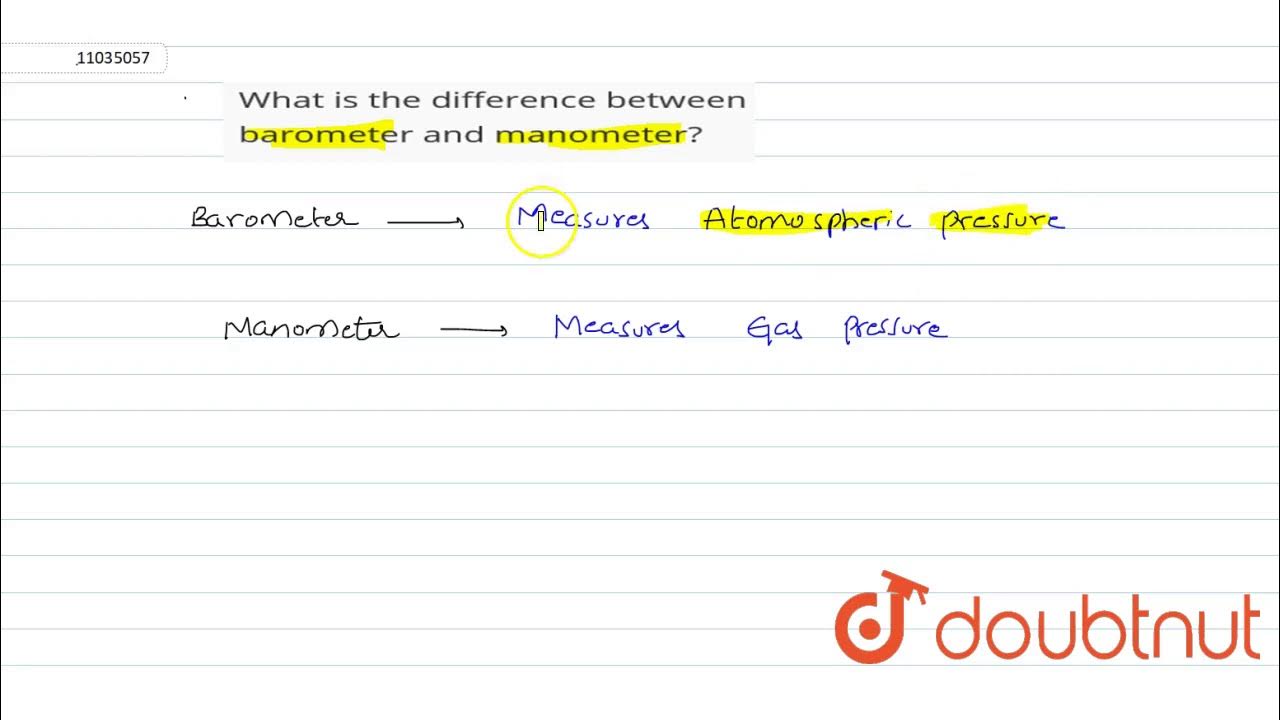 11035057
What is the difference between
barometer and manometer?
Barometer → Measures Atomospheric pressure
Manometer → Measures Gas pressure
doubtnut